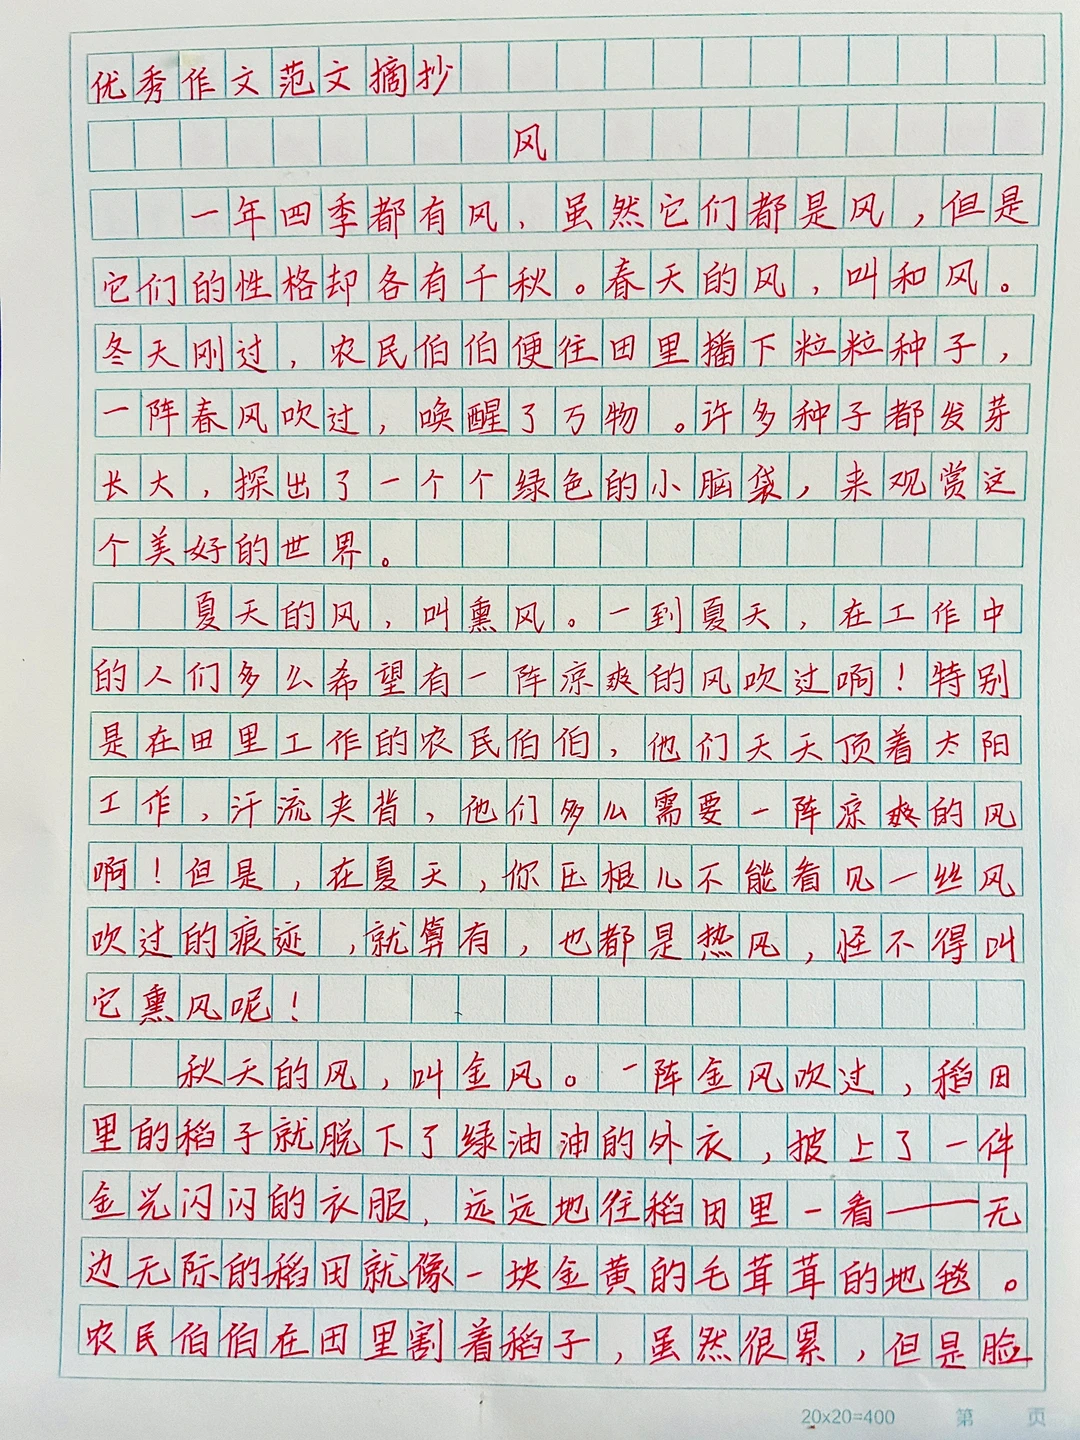 优秀作文范文摘抄
风
一年四季都有风，虽然它们都是风，但是
它们的性格却各有千秋。春天的风，叫和风。
冬天刚过，农民伯伯便往田里播下粒粒种子，
一阵春风吹过，唤醒了万物。许多种子都发芽
长大，探出了一个个绿色的小脑袋，来观赏这
个美好的世界。
夏天的风，叫熏风。一到夏天，在工作中
的人们多么希望有一阵凉爽的风吹过啊！特别
是在田里工作的农民伯伯，他们天天顶着太阳
工作，汗流夹背，他们多么需要一阵凉爽的风
啊！但是，在夏天，你压根儿不能看见一丝风
吹过的痕迹，就算有，也都是热风，怪不得叫
它熏风呢！
秋天的风，叫金风。一阵金风吹过，稻田
里的稻子就脱下了绿油油的外衣，披上了一件
金光闪闪的衣服，远远地往稻田里一看——无
边无际的稻田就像一块金黄的毛茸茸的地毯。
农民伯伯在田里割着稻子，虽然很累，但是脸
20x20=400 第 页